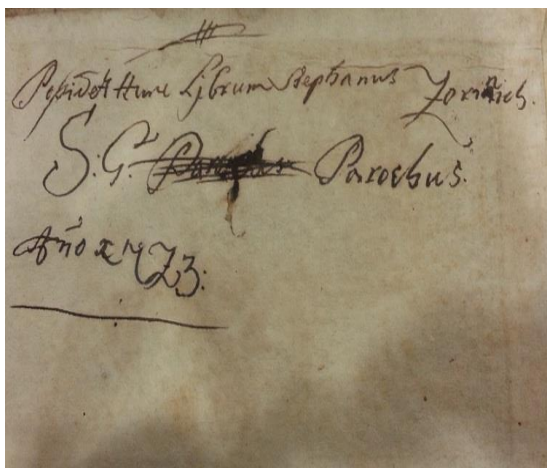 Posidet Hunc Librum Stephanus Zorichich.
S. G. Parochus.
Año 1773: